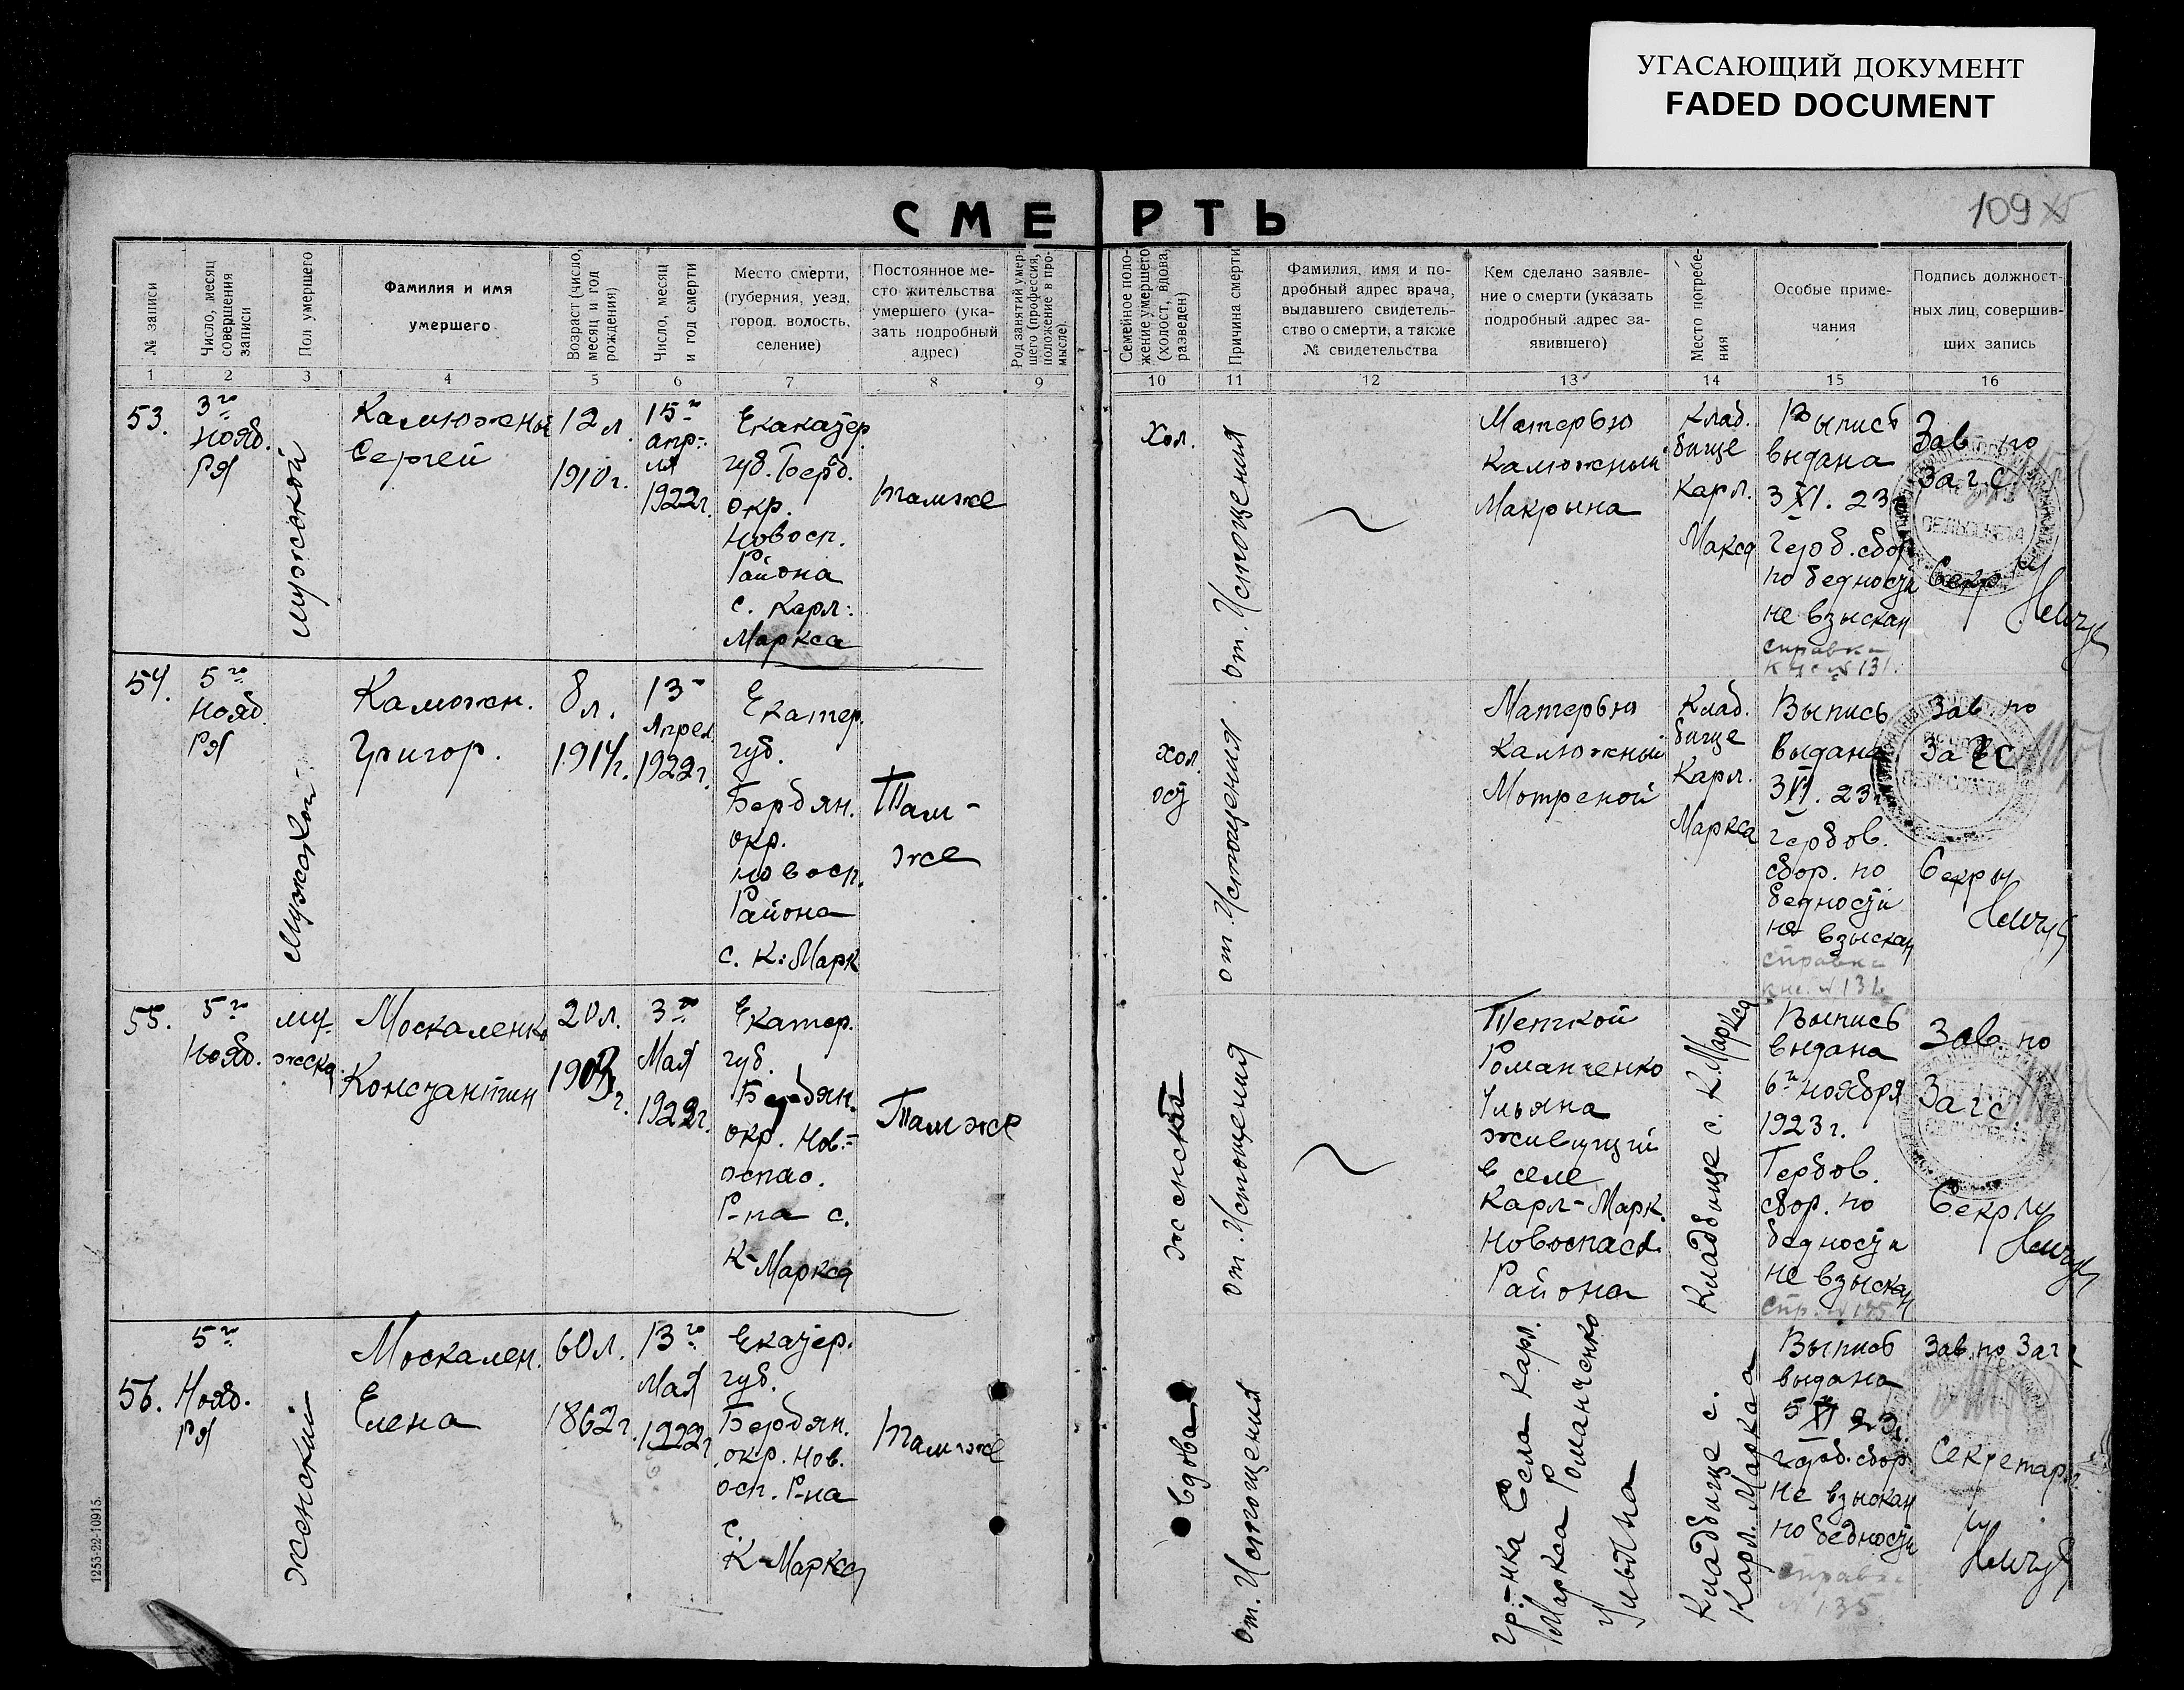 УГАСАЮЩИЙ ДОКУМЕНТ
FADED DOCUMENT
109
СМЕРТЬ
№ записи
Число, месяц совершения записи
Пол умершего
Фамилия и имя
умершего
Возраст (число, месяц и год рождения)
Число, месяц и год смерти
Место смерти,
(губерния, уезд,
город, волость,
селение)
Постоянное ме-
сто жительства
умершего (ука-
зать подробный
адрес)
Род занятий умер-
шего (профессия,
положение в про-
мысле).
Семейное поло-
жение умершего
(холост, вдова,
разведен)
Причина смерти
Фамилия, имя и по-
дробный адрес врача,
выдавшего свидетель-
ство о смерти, а также
№ свидетельства
Кем сделано заявле-
ние о смерти (указать
подробный адрес за-
явившего)
Место погребе-
ния
Особые приме-
чания
Подпись должност-
ных лиц, совершив-
ших запись
1 2 3 4 5 6 7 8 9 10 11 12 13 14 15 16
53.
3го
нояб.
ря
мужской
Калюжный
Сергей
12 л.
1910 г.
15го
апре-
ля
1922 г.
губ. Берд.
окр.
Новосп.
Района
с. Карл:
Маркса
тамже
Хол.
от. Истощения
Матерью
Калюжный
Макрына
Клад.
бище
Карл.
Макса
Выпись
выдана
3 XI. 23
Герб. сбор
по бедности
не взыскан
справка
№ 131.
Зав. по
Загс
Секр.
54.
5го
Нояб.
ря
Мужской
Калюжн.
Григор.
8 л.
1914 г.
13
Апрел.
1922 г.
Екатер.
губ.
Бердян.
окр.
Новосп.
Района
с. К. Марк
Там-
же
хол.
от. Истощения
Матерью
Калюжный
Мотреной
Клад.
бище
Карл.
Маркса
Выпись
выдана
3 XI. 23
гербов.
сбор. по
бедности
не взыскан
справка
Зав. по
Загс
Секр
55.
5го
Нояб.
му-
жска
Москаленко
Константин
20 л.
3го
Мая
1922 г.
Екатер.
губ.
Бердян.
окр. Нов.=
оспас.
Р-на с.
К-Маркса
Тамже
женат
от. Истощения
Теткой
Романченко
Ульяна
живущий
в селе
Карл-Марк.
Новоспасов.
Района
Кладбище с. К. Маркса
Выпись
выдана
6го ноября
1923 г.
Гербов.
сбор. по
бедности
не взыскан
Зав. по
Загс
Секр
56.
5го
Нояб.
ря
женский
Москален.
Елена
60 л.
1862 г.
13го
Мая
1922 г.
Екатер.
губ.
Бердян.
окр. Нов.
осп. Р-на
с.
К-Маркса
тамже
вдова
от. Истощения
гр.-нка Села Карл.
Маркса Романченко
Ульяна
Кладбище с.
Карл. Маркса
Выпись
выдана
5 XI 23 г.
герб. сбор
не взыскан
по бедности
справка
№ 135
Зав. по Загс
Секретарь
1253-22-10915.